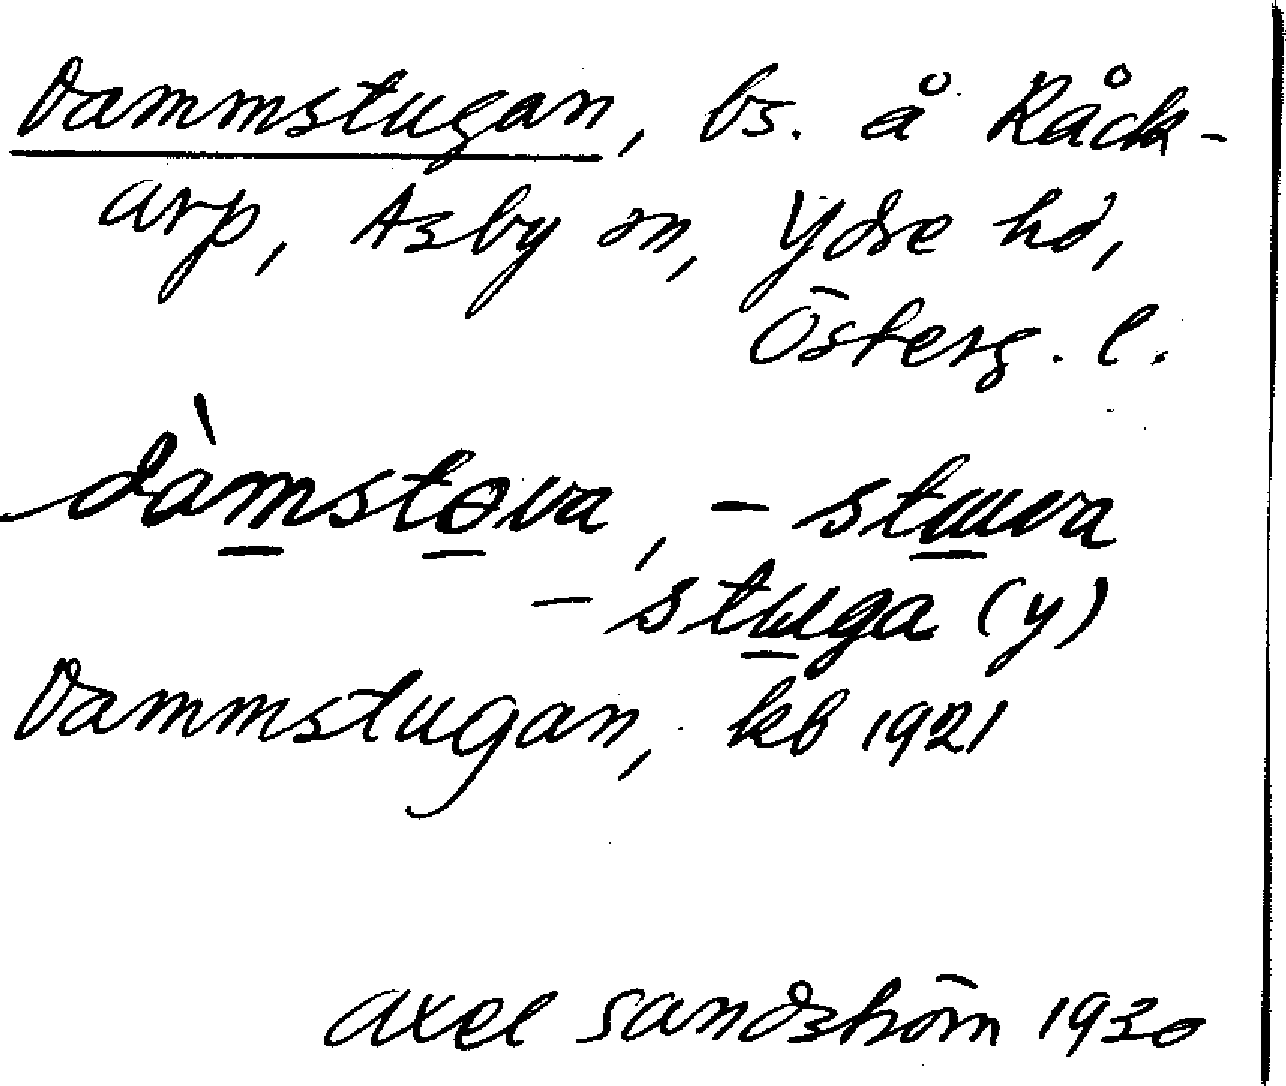 Dammstugan, bs. å Råck-
arp, Asby sn, Ydre hd,
Österg. l.
dàmstɵva, - stuva
- stuga (y)
Dammstugan, kb 1921
Axel Sandström 1930